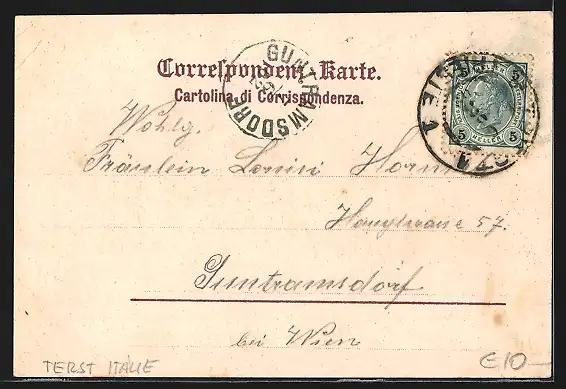 Correspondenz-Karte.
Cartolina di Corrispondenza.
GUNTRAMSDORF
5 5
5 HELLER 5
TRIESTE
Wohlg.
Fräulein Louisi
Hauptstrasse 57.
Guntramsdorf
bei Wien
TERST ITALIE
€10-